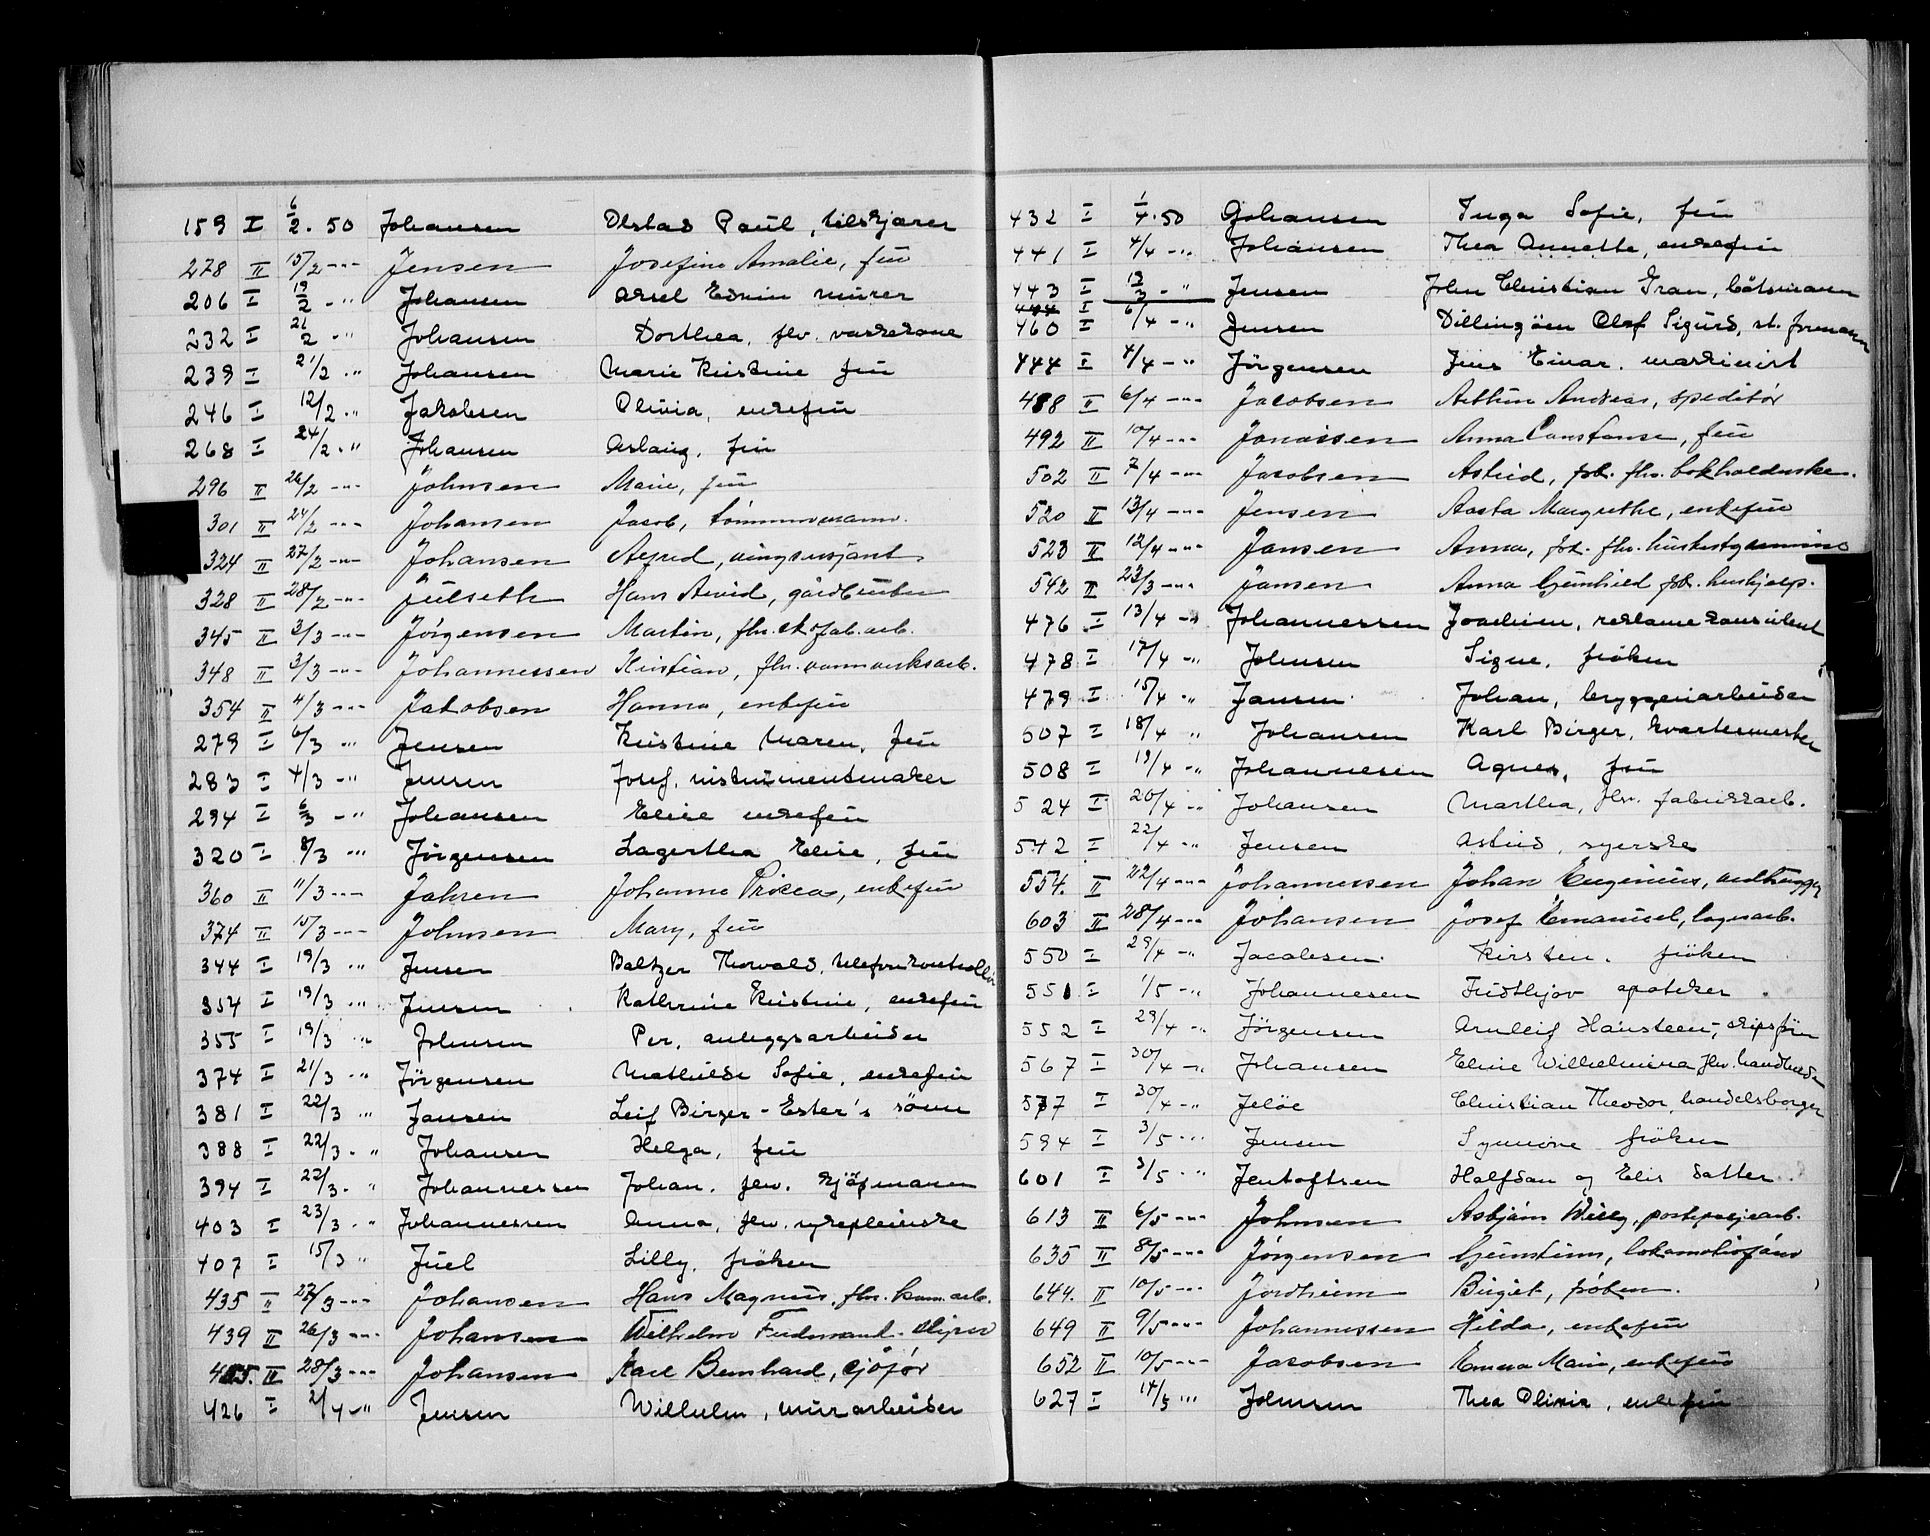 159 I 6/2. 50 Johansen Olstad Paul, tilskjærer
278 II 15/2 -"- Jensen Josefine Amalie, fru
206 I 19/2 -" Johansen Aksel Edvin murer
232 I 21/2 -" Johansen Dorthea, fhv. vaskekone
239 I 21/2 -" Johansen Marie Kristine fru
246 I 12/2 -" Jakobsen Olivia, enkefru
268 I 24/2 -" Johansen Aslaug, fru
296 II 26/2 -"- Johnsen Marie, fru
301 II 24/2 -"- Johansen Jacob, tömmermann.
324 II 27/2 -"- Johansen Alfred, visergsjant
328 II 28/2 -"- Julseth Hans Arvid, gårdbruker
345 II 3/3 -"- Jörgensen Martin, fhv. skofab.arb.
348 II 3/3 -"- Johannessen Kristian, fhv. vannverksarb.
354 II 4/3 -"- Jakobsen Hanna, enkefru
279 I 6/3 -" Jensen Kristine Maren, fru
283 I 4/3 -" Jensen Josef, instrumentmaker
294 I 6/3 -" Johansen Elise enkefru
320 I 8/3 -" Jörgensen Lagertha Elise, fru
360 II 11/3 -"- Jahren Johanne Priscea, enkefru
374 II 15/3 -"- Johnsen Mary, fru
344 I 19/3 -" Jensen Baltzer Thorvald, telefonkontrollör
354 I 19/3 -" Jensen Kathrine Kristine, enkefru
355 I 19/3 -" Johnsen Per, anleggsarbeider
374 I 21/3 -" Jörgensen Mathilde Sofie, enkefru
381 I 22/3 -" Jansen Leif Birger - Ester's sönn
388 I 22/3. " Johansen Helga, fru
394 I 22/3. " Johannessen Johan, fhv. kjöpmann
403 I 23/3. " Johannessen Anna, fhv. sykepleierske
407 I 15/3 " Juel Lilly, fröken
435 II 27/3 -"- Johansen Hans Magnus, fhv. kom.arb.
439 II 26/3 -"- Johansen Wilhelm Ferdinand - skipsr
455. II 28/3 -"- Johansen Karl Bernhard, sjåfør
426 I 2/4 -" Jensen Wilhelm, murarbeider
432 I 1/4. 50 Johansen Inga Sofie, fru
441 I 4/4 -" Johansen Thea Annette, enkefru
443 I 13/3 -" Jensen John Christian Gran, båtsmann
444 I
460 I 6/4 -" Jensen Dillingöen Olaf Sigurd, st. formann
444 I 4/4 -" Jörgensen Jens Einar, maskinist
488 II 6/4 -"- Jacobsen Arthur Andreas, speditør
492 II 10/4 -"- Jonassen Anna Constanse, fru
502 II 7/4 -"- Jacobsen Astrid, frk. fhv. bokholderske.
520 II 13/4 -"- Jensen Aasta Margrethe, enkefru
523 II 12/4 -"- Jansen Anna, frk. fhv. husbestyrerinne
542 II 23/3 -"- Jansen Anna Gunhild frk. hushjelp.
476 I 13/4 -" Johannessen Joachim, reklamekonsulent
478 I 17/4 -" Johnsen Signe, fröken
479 I 15/4 " Jansen Johan, bryggeriarbeider
507 I 18/4 " Johansen Karl Birger, kvartermester
508 I 19/4 -" Johannesen Agnes, fru
524 I 20/4 -" Johansen Martha, fhv. fabrikkarb.
542 I 22/4 -" Jensen Astrid, syerske
554. II 22/4 -"- Johannessen Johan Eugenius, vedhugger
603 II 28/4 -"- Johansen Josef Emanuel, lagerarb.
550 I 29/4 -" Jacobsen Kirsten, fröken
551 I 1/5 -" Johannesen Fridthjov apoteker
552 I 29/4 -" Jörgensen Arnleif Hansteen, skipsför
567 I 30/4 -" Johansen Eline Wilhelmina fhv. handlende
577 I 30/4 -" Jelöe Christian Theodor, handelsborger
594 I 3/5 -" Jensen Synnöve fröken
601 I 3/5 -" Jentoftsen Halfdan og Elis datter
613 II 6/5 -"- Johnsen Asbjörn Willy, postspesjearb.
635 II 8/5 -"- Jörgensen Gunstinus, lokomotivförer
644. II 10/5 -"- Jordheim Birgit, fröken.
649 II 9/5 -"- Johannessen Hilda, enkefru
652 II 10/5 -"- Jacobsen Emma Marie, enkefru
627 I 14/5 " Johnsen Thea Olivia, enkefru